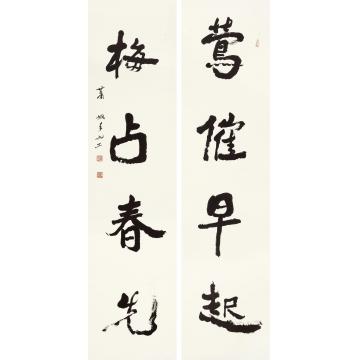 莺催早起
梅占春先